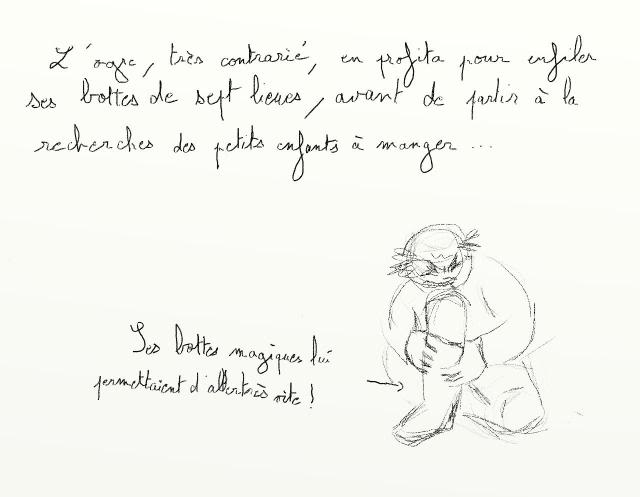 L'ogre, très contrarié, en profita pour enfiler
ses bottes de sept lieues, avant de partir à la
recherches des petits enfants à manger ...
Ses bottes magiques lui
permettaient d'aller très vite !